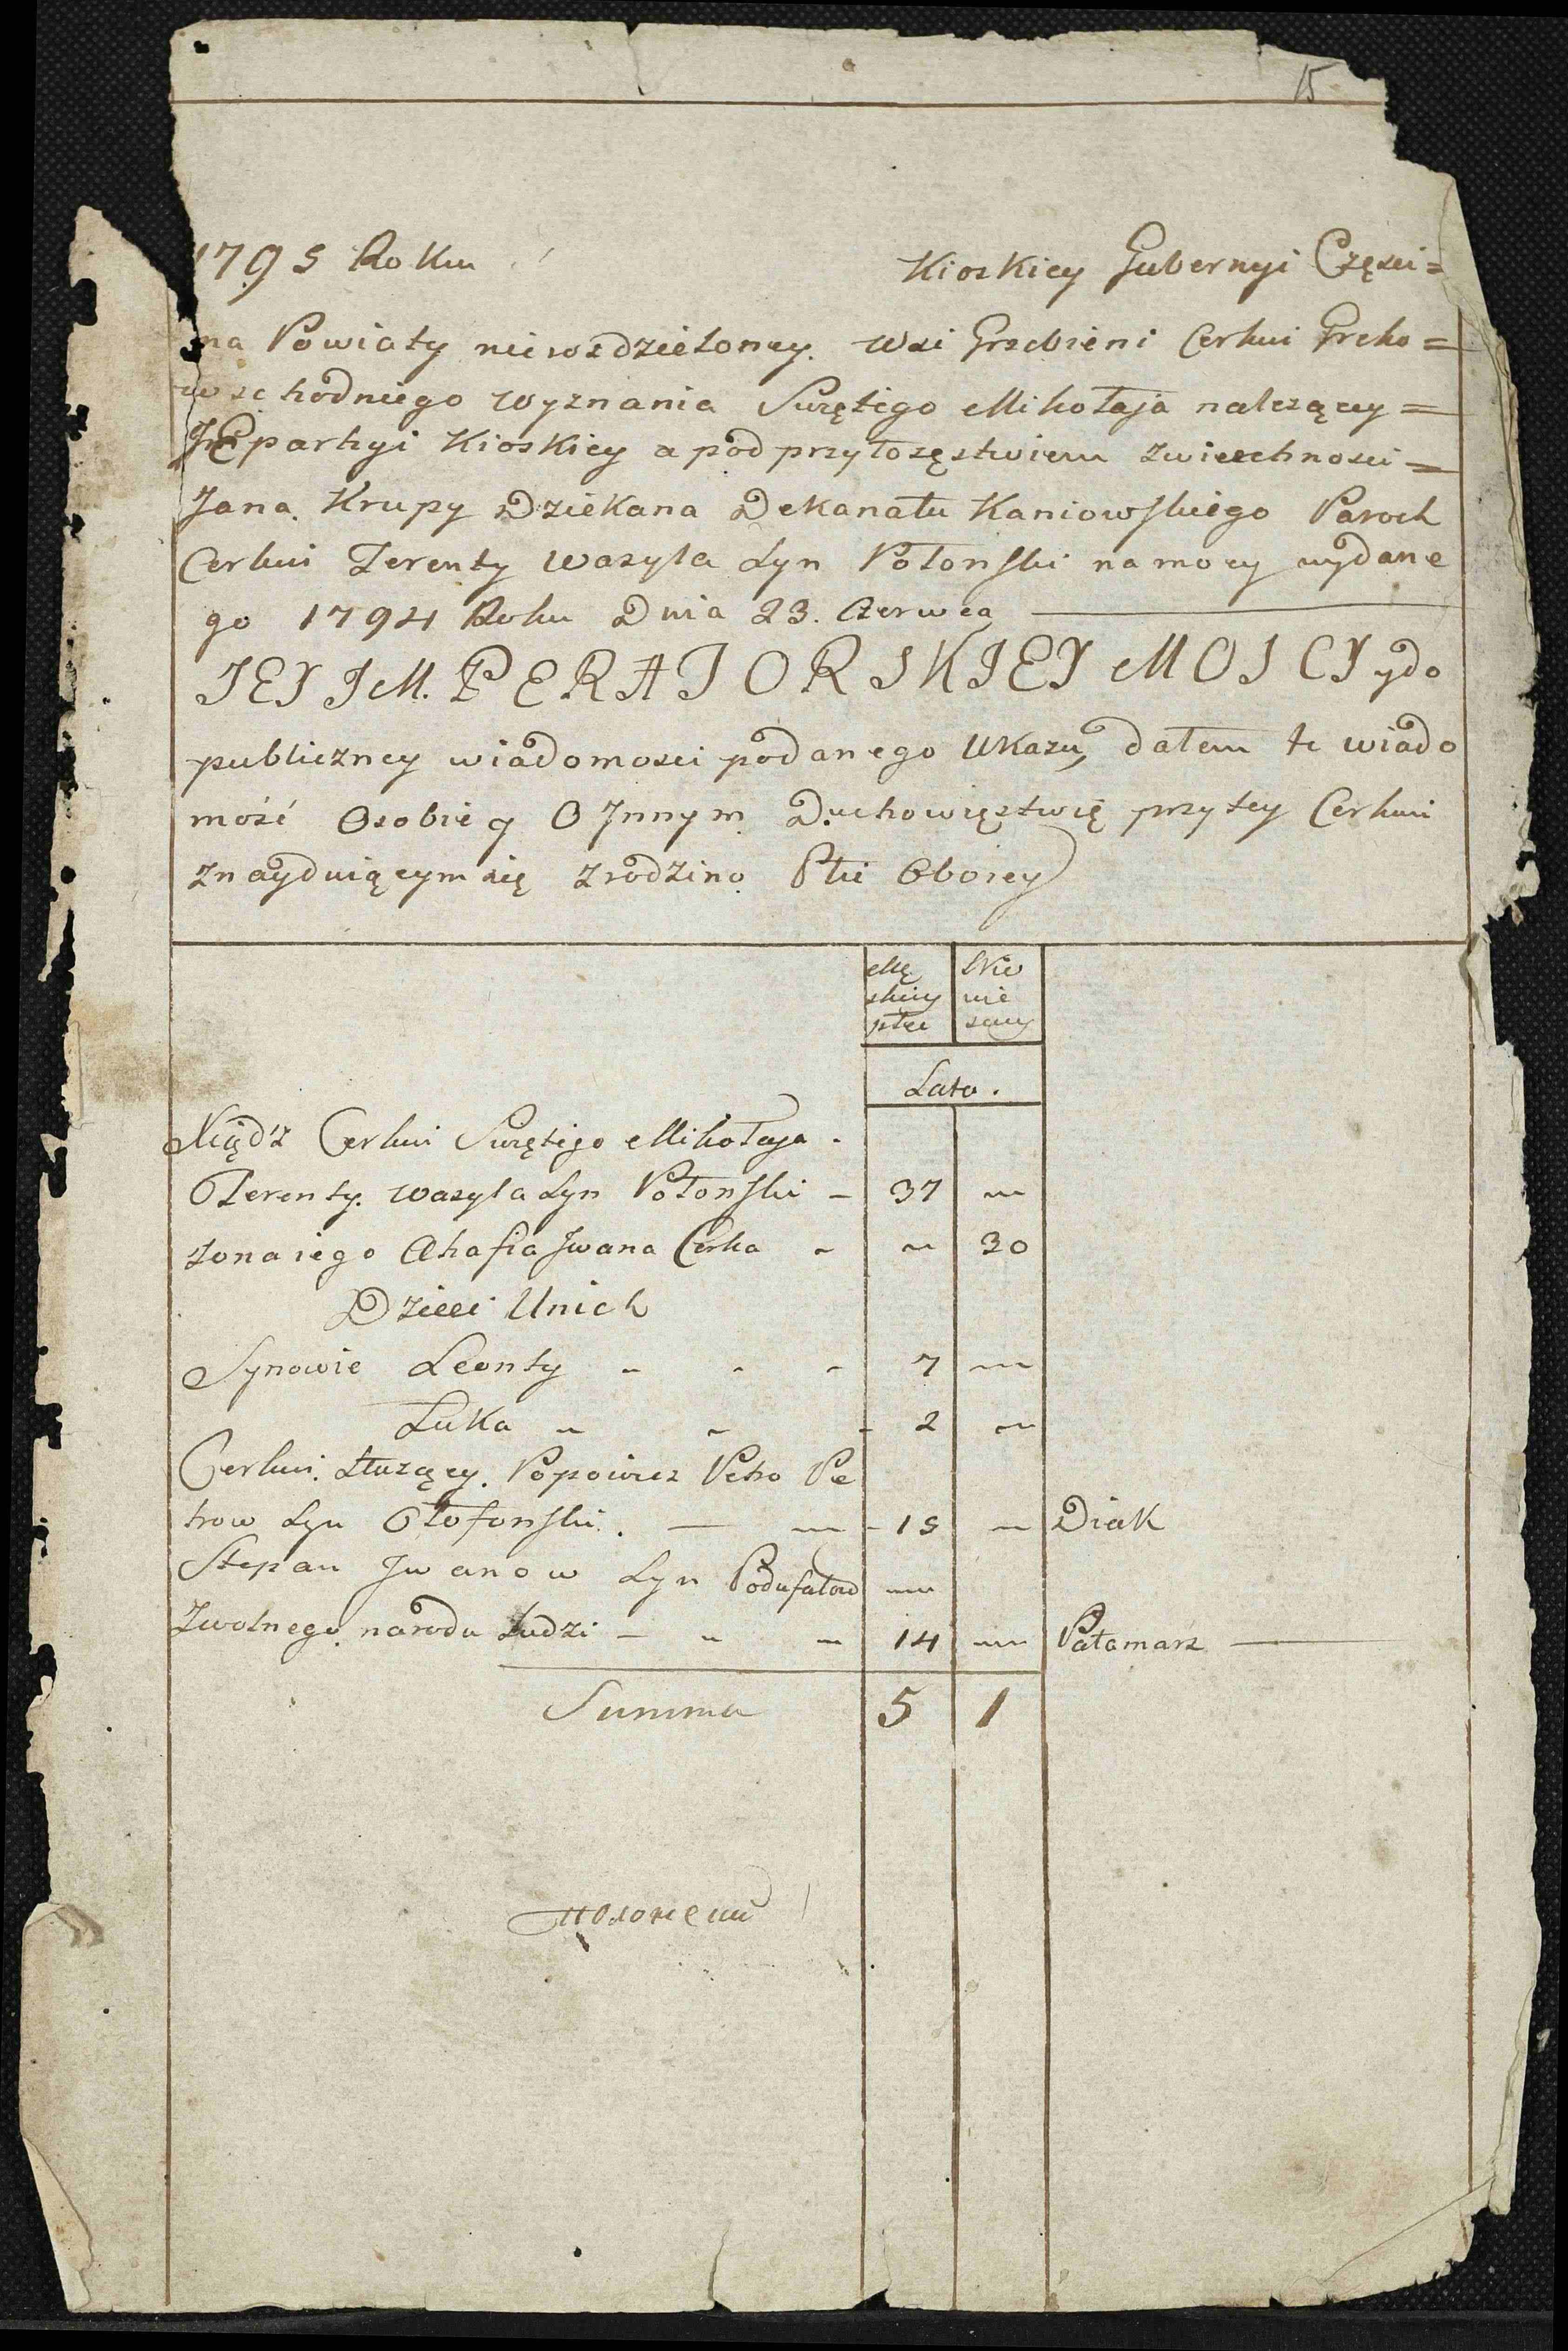 15
1795 Roku
Kioskiey Gubernyi Częsci=
na Powiaty nierozdzieloney. Wsi Grzebieni Cerkwi Greko=
wschodniego wyznania Swętego Mikołaja nalezącey=
Eparhyi Kioskiey a pod przyłozęstwiem zwierchnosci=
Jana Krupy Dziekana Dekanatu Kaniowskiego Paroch
Cerkwi Terenty Wasyla Syn Połonski na mocy wydane
go 1794 Roku Dnia 23. Czerwca
JEY JM.PERATORSKIEY MOSCY ydo
publiczney wiadomosci podanego Ukazu, dałem te wiado
mość Osobie y O Jnnym Duchowięstwię przytey Cerkwi
znayduiącym się zrodzino Płci Oboiey
Mę
skiey
płci
Nie
wie
sciey
Lata.
Xiądz Cerkwi Swętego Mikołaja.
Terenty. Wasyla Syn Połonski - 37
zona iego Ahafia Jwana Corka 30
Dzieci Unich
Synowie Leonty 7
Luka 2
Cerkwi słuzący. Popowicz Petro Pe
trow Syn Ołofonski. 15 Diak
Stepan Jwanow Syn
zwolnego narodu Ludzi 14 Pałamarz
Summa 5 1